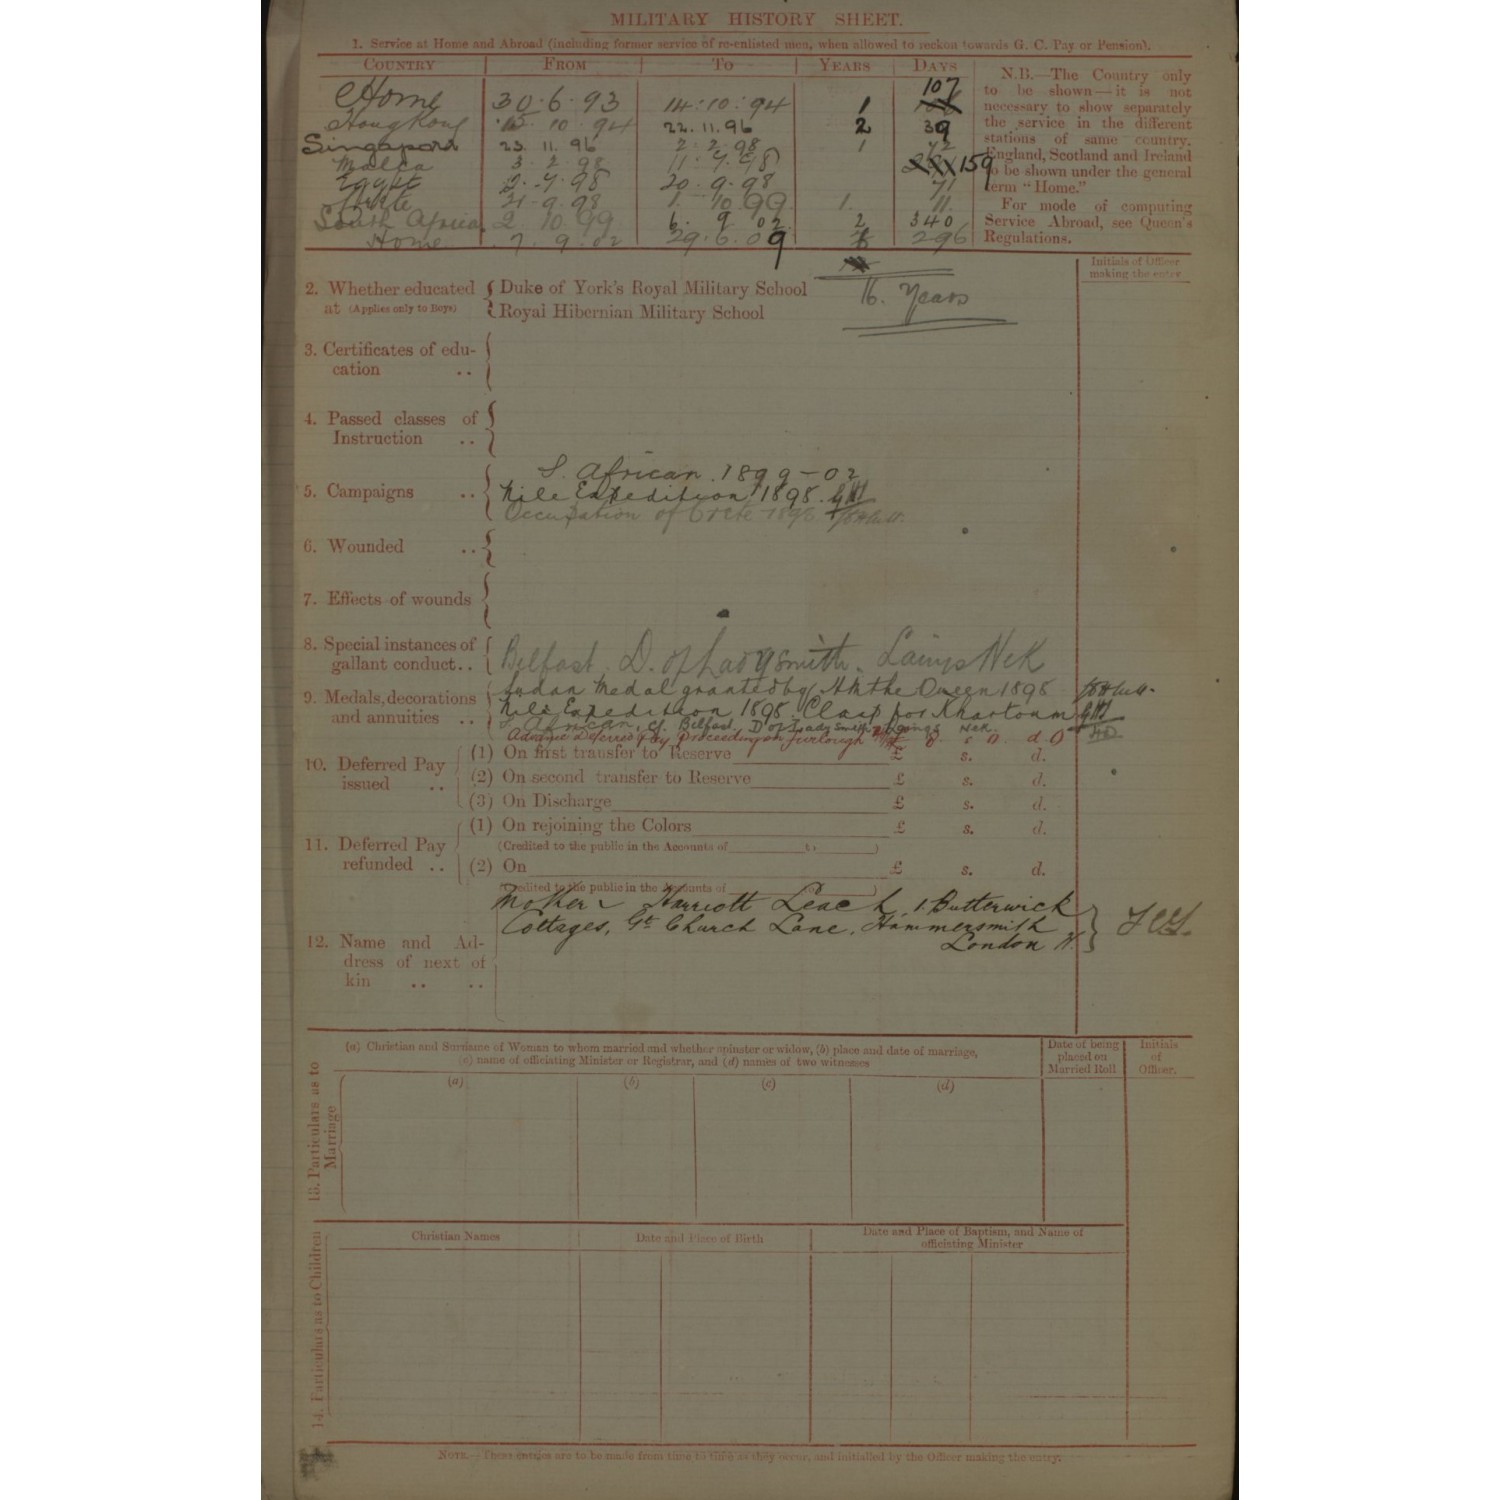 MILITARY HISTORY SHEET.
1. Service at Home and Abroad (including former service of re-enlisted men, when allowed to reckon towards G. C. Pay or Pension).
COUNTRY FROM TO YEARS DAYS
Home 30·6·93 14·10·94 1 107
Hong Kong 15·10·94 22.11.96 2 39
Singapore 23.11.96 2·2·98 1 72
Malta 3·2·98 11·7·98 159
Egypt 2·7·98 20·9·98 71
Crete 21·9·98 1·10·99 1 11
South Africa 2 10 99 6. 9 02 2 340
Home 7. 9. 02 29.6.09 296
N.B.—The Country only
to be shown—it is not
necessary to show separately
the service in the different
stations of same country.
England, Scotland and Ireland
to be shown under the general
term "Home."
For mode of computing
Service Abroad, see Queen's
Regulations.
Initials of Officer
making the entry
16. Years
2. Whether educated Duke of York's Royal Military School
at (Applies only to Boys) Royal Hibernian Military School
3. Certificates of edu-
cation ..
4. Passed classes of
Instruction ..
S. African. 1899-02
5. Campaigns .. Nile Expedition 1898.
Occupation of Crete 1898
6. Wounded ..
7. Effects of wounds
8. Special instances of
gallant conduct.. Belfast. D. of Ladysmith. Laings Nek
9. Medals, decorations Sudan Medal granted by H.M. the Queen 1898
and annuities .. Nile Expedition 1898 Clasp for Khartoum
S. African. Belfast. D of Ladysmith Laings Nek.
Deferred Pay Proceeding on furlough £ s. d.
10. Deferred Pay
issued ..
(1) On first transfer to Reserve £ s. d.
(2) On second transfer to Reserve £ s. d.
(3) On Discharge £ s. d.
11. Deferred Pay
refunded ..
(1) On rejoining the Colors £ s. d.
(Credited to the public in the Accounts of )
(2) On £ s. d.
(Credited to the public in the Accounts of )
Mother Harriott Leach, 1. Butterwick
Cottages, Gt. Church Lane, Hammersmith
London W.
12. Name and Ad-
dress of next of
kin .. ..
13. Particulars as to Marriage
(a) Christian and Surname of Woman to whom married and whether spinster or widow, (b) place and date of marriage,
(c) name of officiating Minister or Registrar, and (d) names of two witnesses
Date of being
placed on
Married Roll
Initials
of
Officer.
(a) (b) (c) (d)
14. Particulars as to Children
Christian Names Date and Place of Birth Date and Place of Baptism, and Name of
officiating Minister
NOTE.—These entries are to be made from time to time as they occur, and initialled by the Officer making the entry.